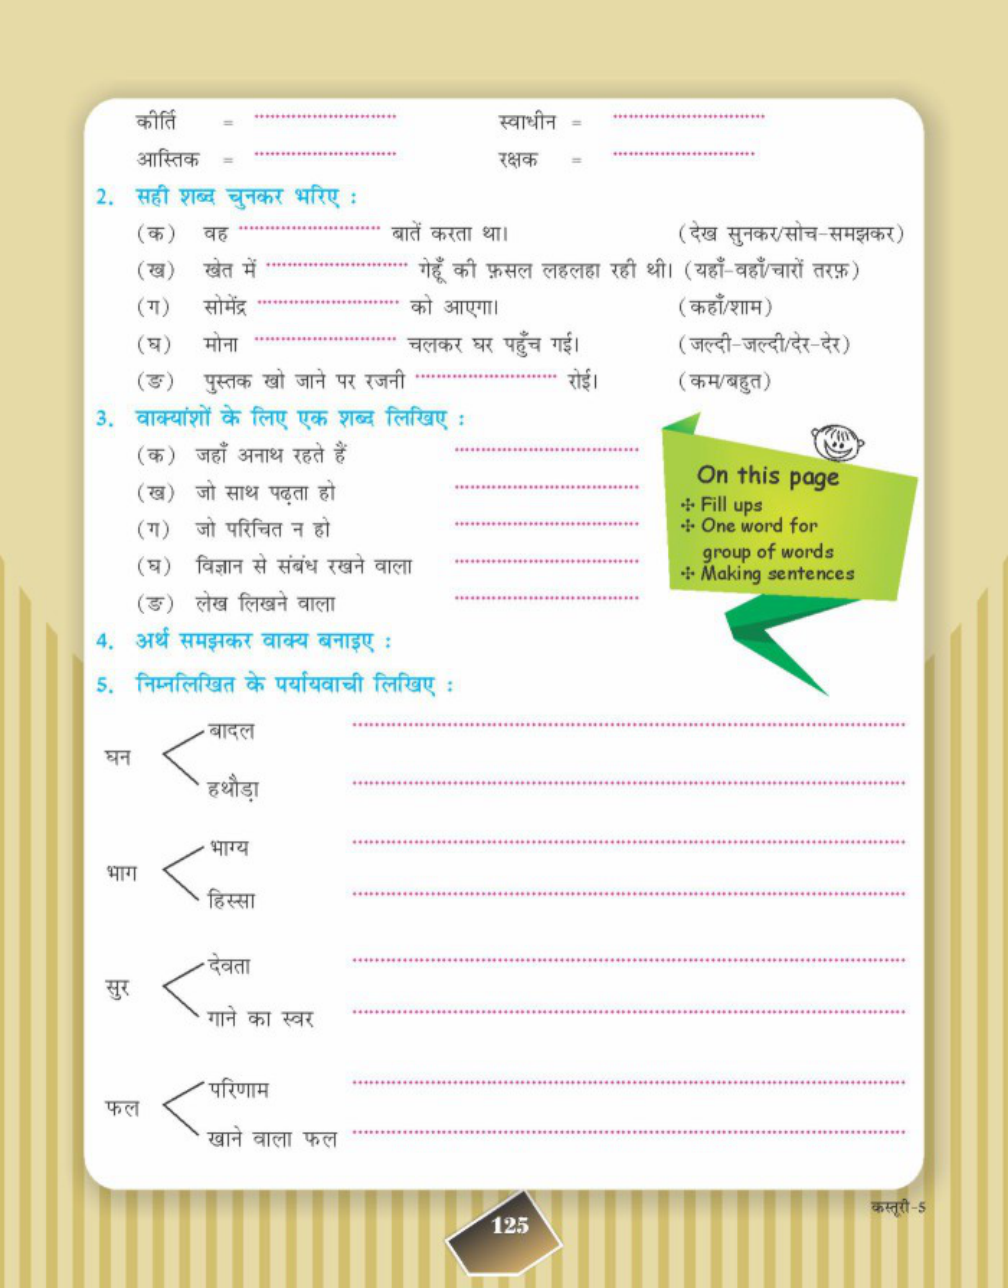 कीर्ति = ............................ स्वाधीन = ............................
आस्तिक = ............................ रक्षक = ............................
2. सही शब्द चुनकर भरिए :
(क) वह ............................ बातें करता था। (देख सुनकर/सोच-समझकर)
(ख) खेत में ............................ गेहूँ की फ़सल लहलहा रही थी। (यहाँ-वहाँ/चारों तरफ़)
(ग) सोमेंद्र ............................ को आएगा। (कहाँ/शाम)
(घ) मोना ............................ चलकर घर पहुँच गई। (जल्दी-जल्दी/देर-देर)
(ङ) पुस्तक खो जाने पर रजनी ............................ रोई। (कम/बहुत)
3. वाक्यांशों के लिए एक शब्द लिखिए :
(क) जहाँ अनाथ रहते हैं ............................
(ख) जो साथ पढ़ता हो ............................
(ग) जो परिचित न हो ............................
(घ) विज्ञान से संबंध रखने वाला ............................
(ङ) लेख लिखने वाला ............................
On this page
Fill ups
One word for
group of words
Making sentences
4. अर्थ समझकर वाक्य बनाइए :
5. निम्नलिखित के पर्यायवाची लिखिए :
बादल ............................
घन
हथौड़ा ............................
भाग्य ............................
भाग
हिस्सा ............................
देवता ............................
सुर
गाने का स्वर ............................
परिणाम ............................
फल
खाने वाला फल ............................
कस्तूरी-5
125